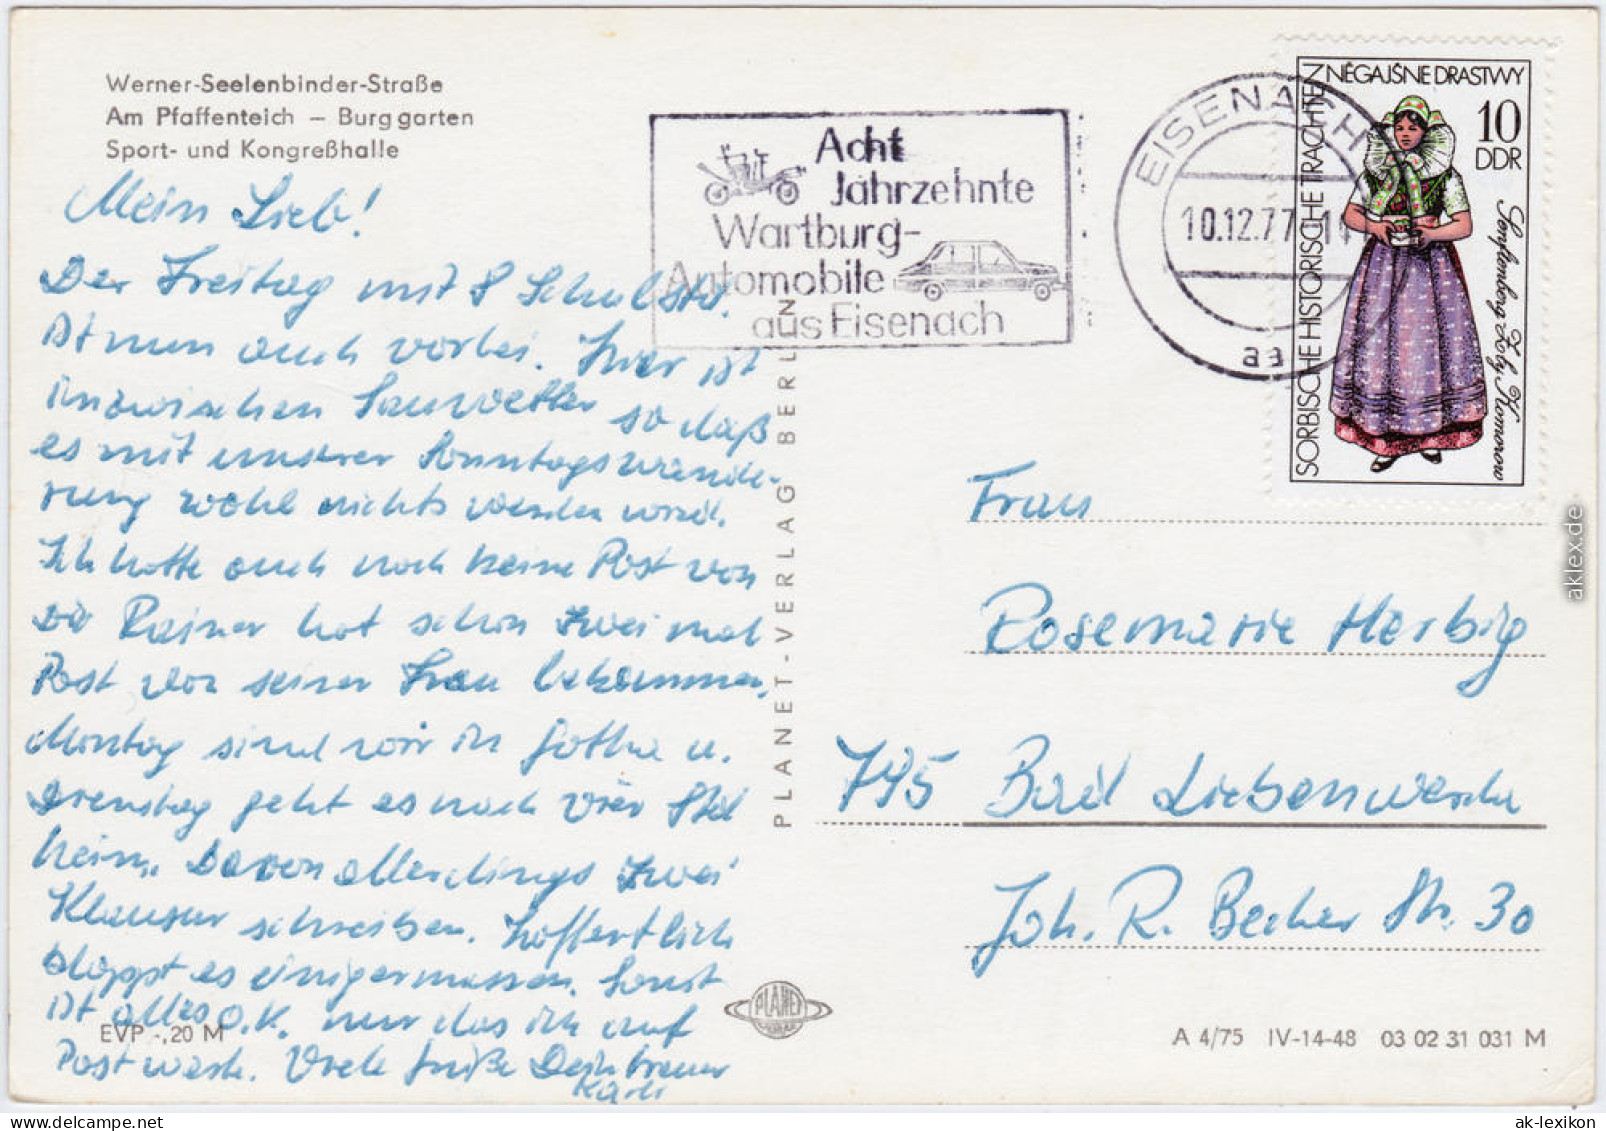 Werner-Seelenbinder-Straße
Am Pfaffenteich – Burggarten
Sport- und Kongreßhalle
Mein Lieb!
Der Freitag mit 8 Schulstd.
ist nun auch vorbei. Hier ist
inzwischen Sauwetter so daß
es mit unserer Sonntagswande-
rung wohl nichts werden wird.
Ich hatte auch noch keine Post von
Dir Rainer hat schon zwei mal
Post von seiner Frau bekommen.
Montag sind wir in Gotha u.
Dienstag geht es nach vier Std
heim. Davon allerdings zwei
Klausur schreiben. Hoffentlich
klappt es einigermassen. Sonst
ist alles o.k. nur das ich auf
Post warte. Viele Grüße Dein treuer
Karli
EVP -,20 M
PLANET-VERLAG BERLIN
PLANET
Acht
Jahrzehnte
Wartburg-
Automobile
aus Eisenach
EISENACH
10.12.77
aa
SORBISCHE HISTORISCHE TRACHTEN
NĚGAJŠNE DRASTWY
10
DDR
Senftenberg Zły Komorow
Frau
Rosemarie Herbig
795 Bad Liebenwerda
Joh. R. Becher Str. 30
A 4/75 IV-14-48 03 02 31 031 M
aklex.de
ak-lexikon